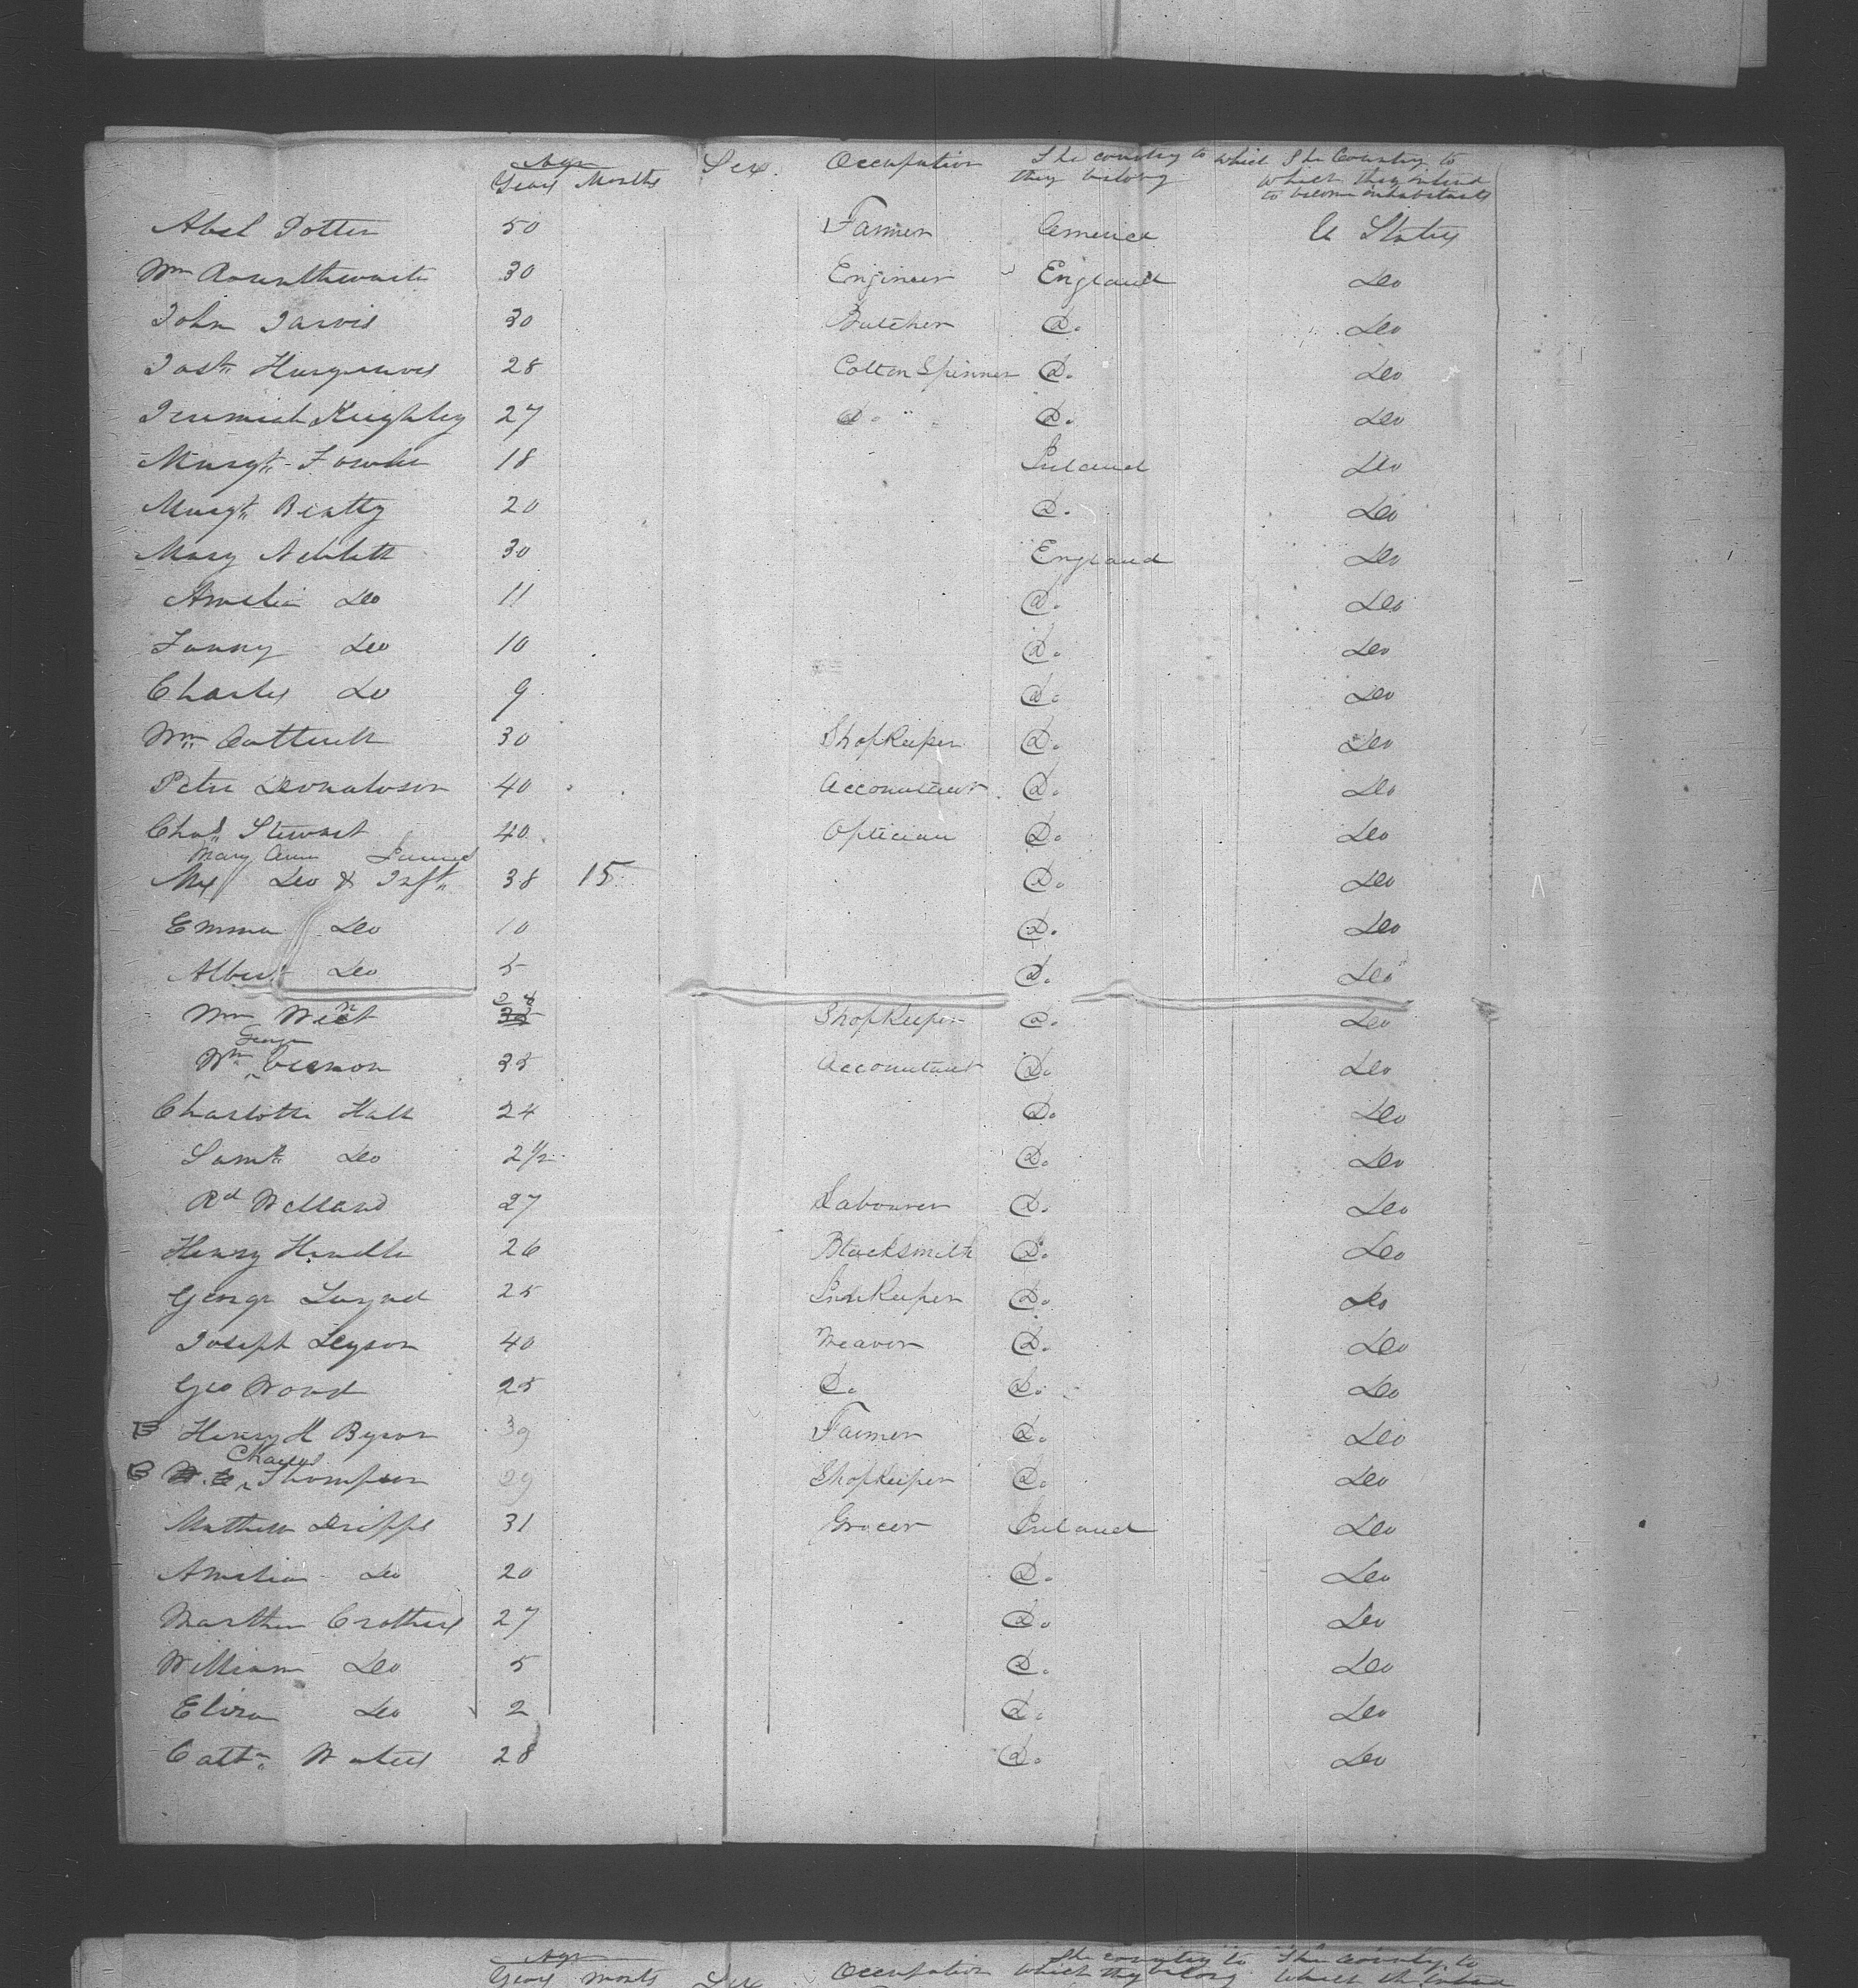 Age Sex. Occupation The country to which The Country to
Years Months they belong which they intend
to become inhabitants
Abel Potter 50 Farmer America U States
Wm 30 Engineer England Do
John Jarvis 30 Butcher Do. Do
Hargreaves 28 Cotton Spinner Do. Do
Jeremiah Keighley 27 Do. Do. Do
Margt. Fowler 18 Ireland Do
Margt. Beatty 20 Do. Do
Mary 30 England Do
Amelia Do 11 Do. Do
Fanny Do 10 Do. Do
Charles Do 9 Do. Do
Wm 30 ShopKeeper Do. Do
Peter Donaldson 40 Accountant Do. Do
Chas. Stewart 40 Optician Do. Do
Mary Ann
Mrs Do & Inft. 38 15 Do. Do
Emma Do 10 Do. Do
Albert Do 5 Do. Do
Wm ShopKeeper Do. Do
George
Wm Vernon 35 Accountant Do. Do
Charlotte Hall 24 Do. Do
Saml. Do 2 1/2 Do. Do
Rd Welland 27 Labourer Do. Do
Henry Hindle 26 Blacksmith Do. Do
George 25 InnKeeper Do. Do
Joseph Dyson 40 Weaver Do. Do
Geo Wood 25 Do. Do. Do
Henry H Byron 39 Farmer Do. Do
Charles
Thompson 29 ShopKeeper Do. Do
Mathew Dripps 31 Grocer Ireland Do
Amelia Do 20 Do. Do
Martha Crothers 27 Do. Do
William Do 5 Do. Do
Eliza Do 2 Do. Do
Cathn. Waters 28 Do. Do
Age The country to The Country to
Years Months Sex Occupation which they belong which th intend